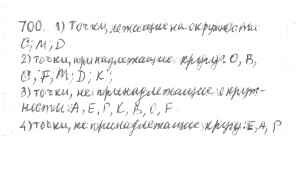 700. 1) Точки, лежащие на окружности
C; M; D
2) точки, принадлежащие кругу: O, B,
C; F, M; D; K;
3) точки, не принадлежащие окруж-
ности: A, E, P, K, B, O, F
4) точки, не принадлежащие кругу: E, A, P